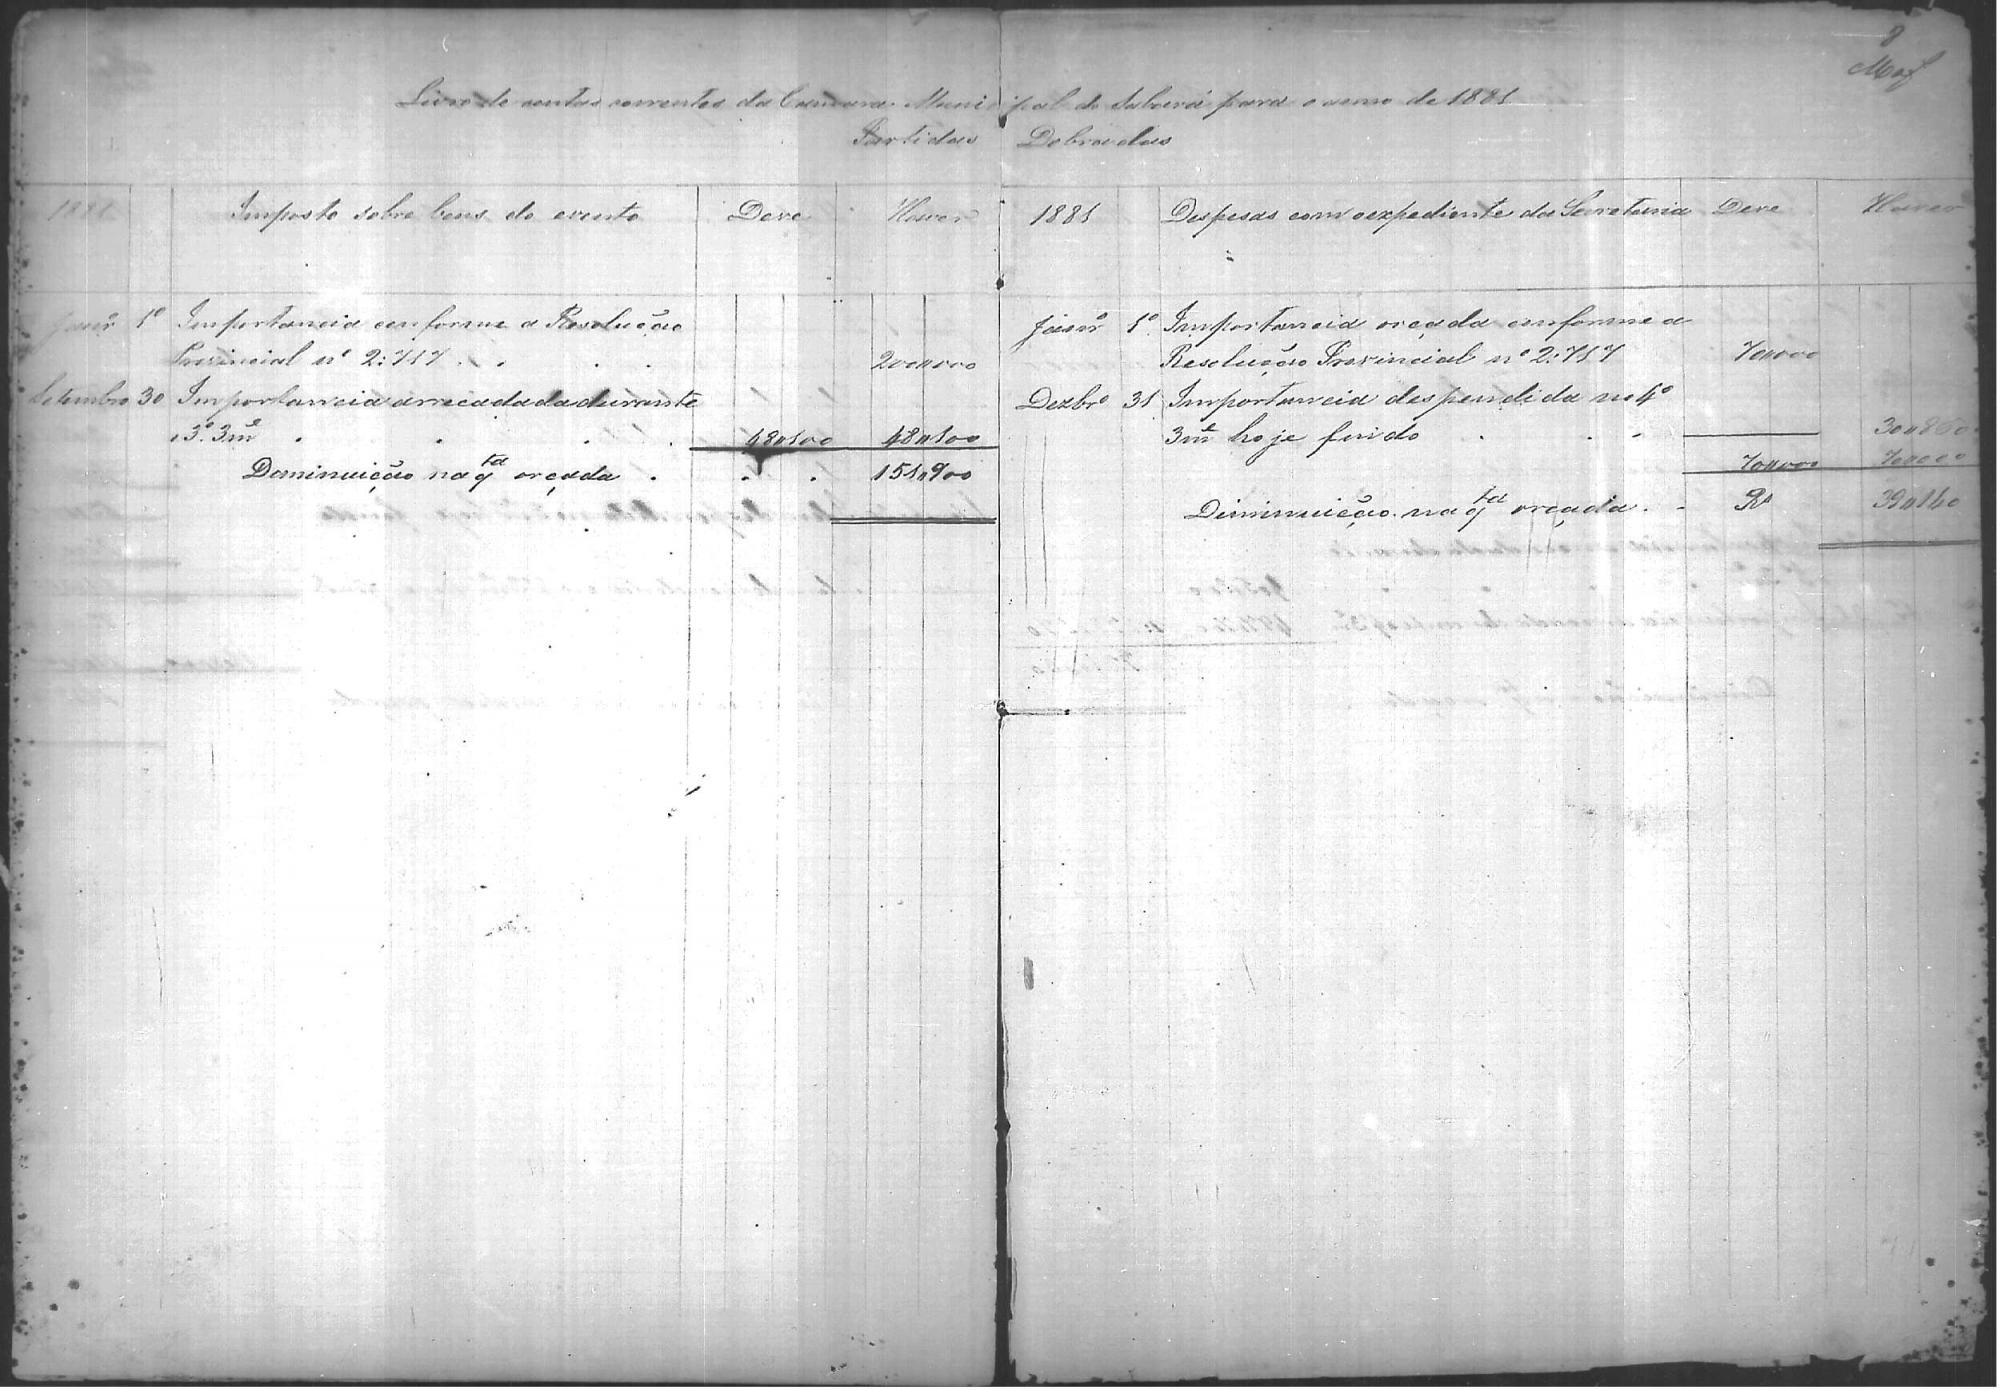 8
Livro de contas correntes da Camara Municipal de Sabará para o anno de 1881
Partidas Dobradas
1881 Imposto sobre bens do evento Deve Haver
Janrº 1º Importancia conforme a Resolução
Provincial nº 2:717 . . . . 200$000
Setembro 30 Importancia arrecadada durante
o 3º 3mê . . . . 48$100 48$100
Deminuição na qta orçada . . . 151$900
1881 Despesas com o expediente da Secretaria Deve Haver
Janrº 1º Importancia orçada conforme a
Resolução Provincial nº 2:717 70$000
Dezbrº 31 Importancia despendida no 4º
3mê hoje findo . . . 30$860
70$000 70$000
Diminuição na qta orçada . . Rs 39$140